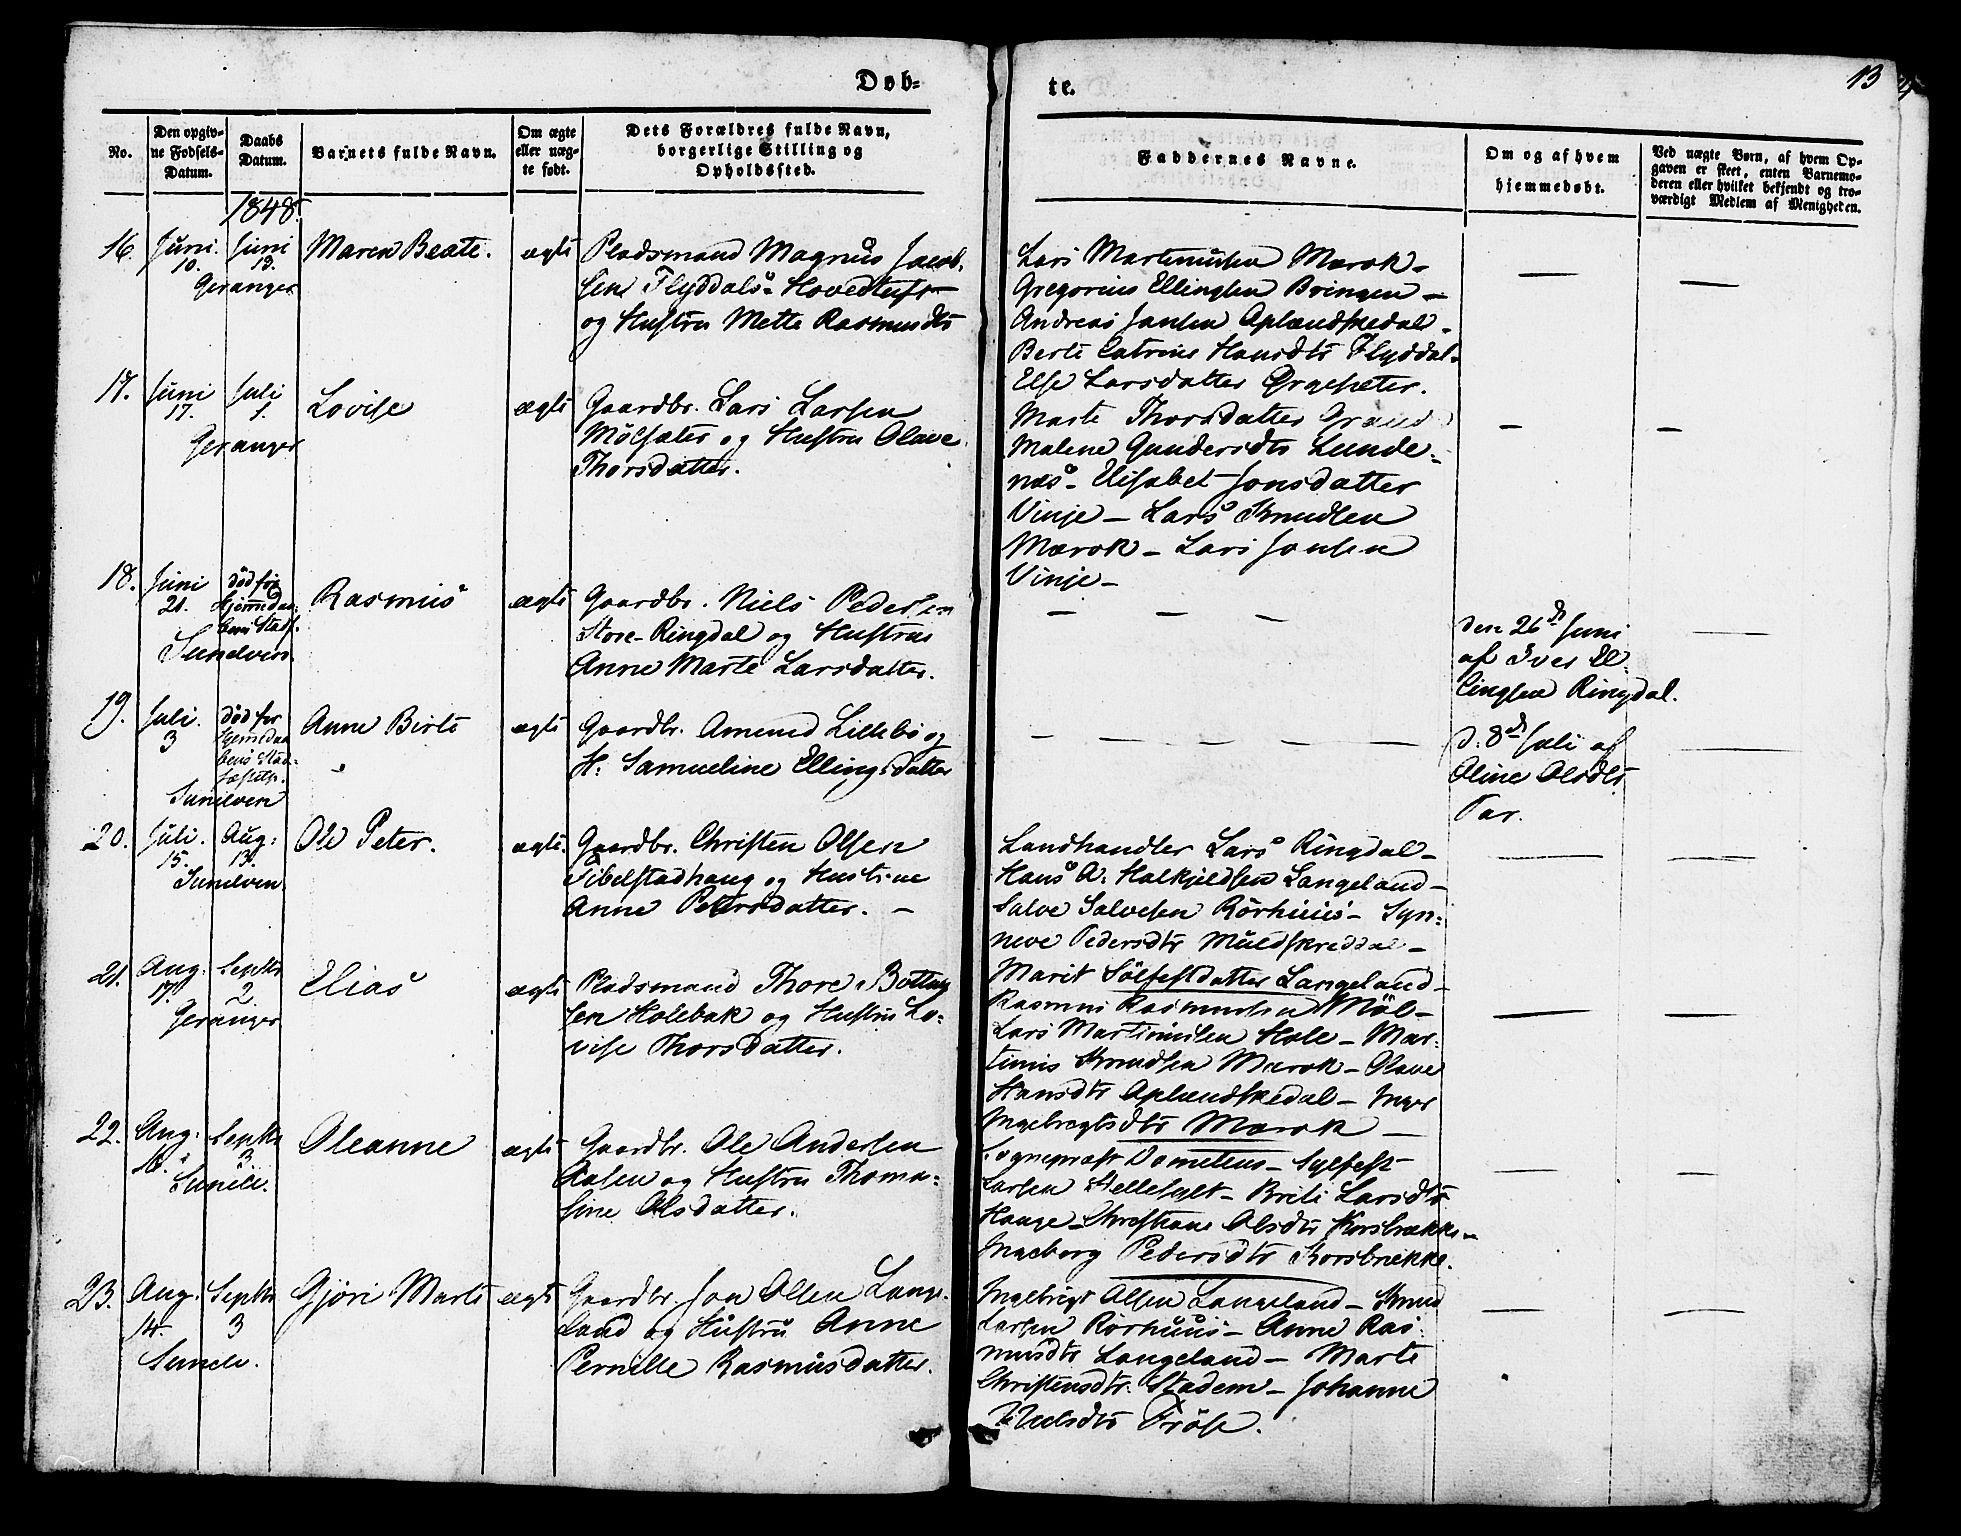 Døb-
te.
13
No.
Den opgiv-
ne Fødsels-
Datum.
Daabs
Datum.
Barnets fulde Navn.
Om ægte
eller uæg-
te født.
Dets Forældres fulde Navn,
borgerlige Stilling og
Opholdssted.
Faddernes Navne.
Om og af hvem
hjemmedøbt.
Ved uægte Børn, af hvem Op-
gaven er skeet, enten Barnemo-
deren eller hvilket bekjendt og tro-
værdigt Medlem af Menigheden.
1848.
16. Juni 10. Juni 13. Maren Beate. ægte
Geranger
Pladsmand Magnus Jacob-
sen Flyddals-Hovedtuft
og Hustru Mette Rasmusdtr
Lars Martinusen Marok-
Gregorius Ellingsen Bringen -
Andreas Jonsen Aplandskedal-
Berte Catrine Hansdtr Flyddal-
Else Larsdatter Grashater.
17. Juni 17. Juli 1. Lovise ægte
Geranger
Gaardbr. Lars Larsen
Mølsater og Hustru Olave
Thorsdatter.
Marte Thorsdatter Grand
Malene Gundersdtr Lunde-
nas- Elisabet Jonsdatter
Vinje - Lars Knudsen
Marok - Lars Jonsen
Vinje -
18. Juni 21. død før
Hjemmedaa-
bens Stadf.
Sunelven
Rasmus ægte
Gaardbr. Niels Pedersen
Store-Ringdal og Hustru
Anne Marte Larsdatter.
den 26de Juni
af Iver El-
lingsen Ringdal.
19. Juli 3 død før
Hjemmedaa
bens Stad-
fæstelse.
Sunelven
Anne Birte ægte
Gaardbr. Amund Lillebø og
H: Samueline Ellingsdatter
d. 8de Juli af
Oline Olsdtr
Tar.
20. Juli 15. Aug: 13. Ole Peter. ægte.
Sunelven
Gaardbr. Christen Olsen
Tibelstadhaug og Hustrue
Anne Petersdatter. -
Landhandler Lars Ringdal-
Hans A. Halkjeldsen Langeland-
Salve Salvesen Rörhuus- Syn-
neve Pedersdtr Muldskreddal-
Marit Sölfestdatter Langeland-
21. Aug. 17. Septbr 2. Elias ægte
Geranger
Pladsmand Thore Botten
sen Holebak og Hustru Lo-
vise Thorsdatter.
Rasmus Rasmusen Möl-
Lars Martinusen Hole - Mar-
tinus Knudsen Marok - Olave
Hansdtr Aplandskedal - Inger
Ingebregtsdtr Marok -
22. Aug. Septbr 3 Oleanne ægte
Sunelv.
Gaardbr. Ole Andersen
Aasen og Hustru Thoma-
sine Olsdatter.
Sognepræst Dometens- Sylfest
Larsen Hellesylt- Brite Larsdtr
Hauge- Christiane Olsdtr Korsbrække-
Ingeborg Pedersdtr Korsbrække.
23. Aug. 14. Septbr 3 Gjøri Marte ægte
Sunelv.
Gaardbr. Jon Olsen Lange-
land og Hustru Anne
Pernille Rasmusdatter.
Ingebrigt Olsen Langeland - Knud
Larsen Rörhuus- Anne Ras-
musdtr Langeland - Marte
Christensdtr. Stadem - Johanne
Nielsdtr Fröse.